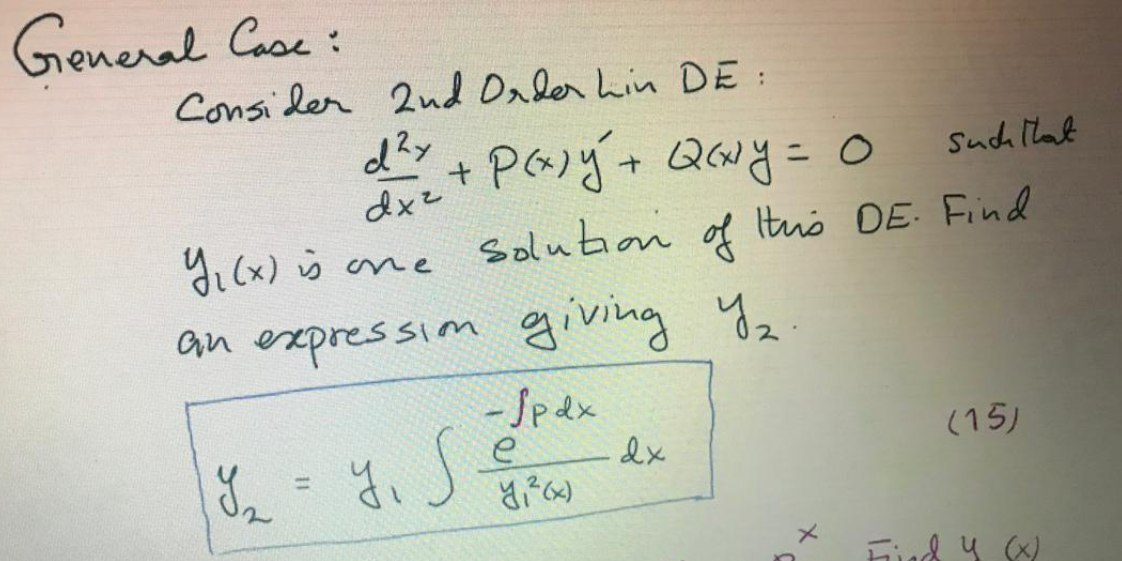 General Case:
Consider 2nd Order Lin DE:
d²y/dx² + P(x)y′ + Q(x)y = 0 such that
y₁(x) is one solution of this DE. Find
an expression giving y₂.
(15)
y₂ = y₁ ∫ e^(-∫p dx) / y₁²(x) dx
x Find y (x)